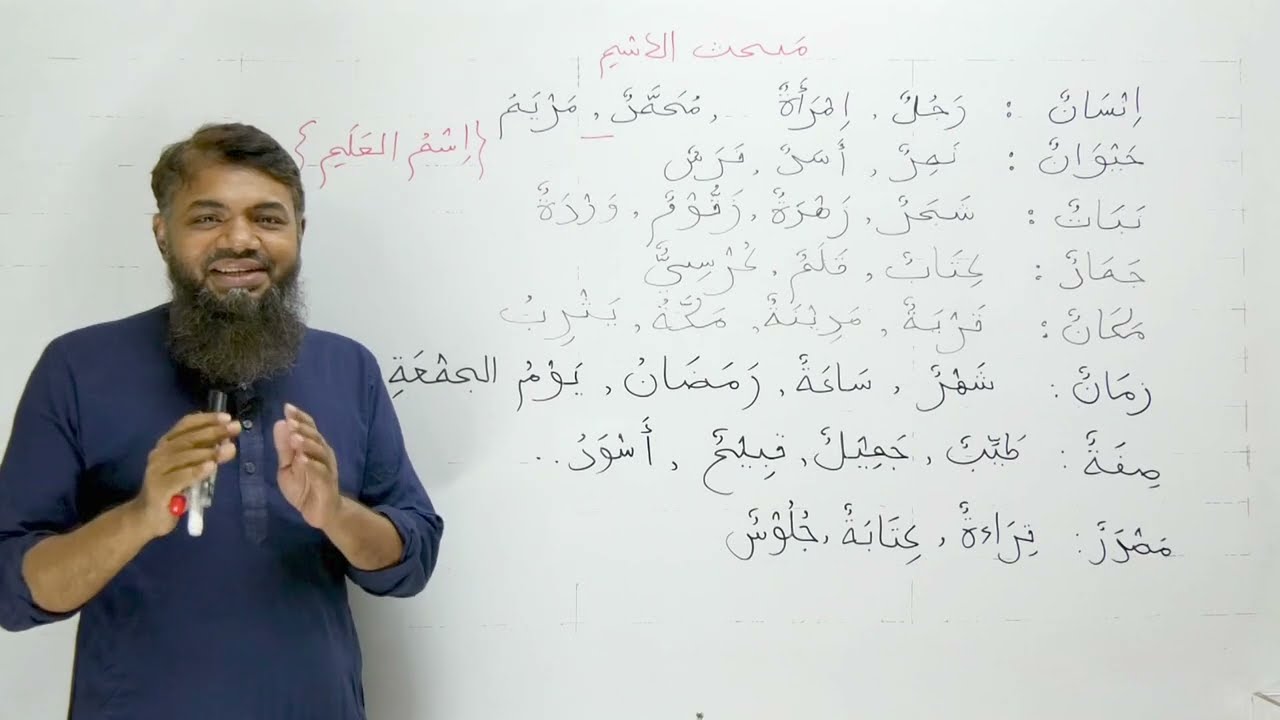 مَبحث الاسْمِ
اِنْسَانٌ : رَجُلٌ، اِمْرَأَةٌ ، مُحَمَّدٌ، مَرْيَمُ
{اِسْمُ العَلَمِ}
حَيْوَانٌ : نَمِرٌ، أَسَدٌ، فَرَسٌ
نَبَاتٌ : شَجَرٌ، زَهْرَةٌ، زَقُّوْمٌ، وَرْدَةٌ
جَمَادٌ : كِتَابٌ، قَلَمٌ، كُرْسِيٌّ
مَكَانٌ : قَرْيَةٌ، مَدِيْنَةٌ، مَكَّةُ، يَثْرِبُ
زَمَانٌ : شَهْرٌ، سَاعَةٌ، رَمَضَانُ، يَوْمُ الجُمْعَةِ
صِفَةٌ : طَيِّبٌ، جَمِيْلٌ، قَبِيْحٌ ، أَسْوَدُ..
مَصْدَرٌ : قِرَاءَةٌ، كِتَابَةٌ، جُلُوْسٌ